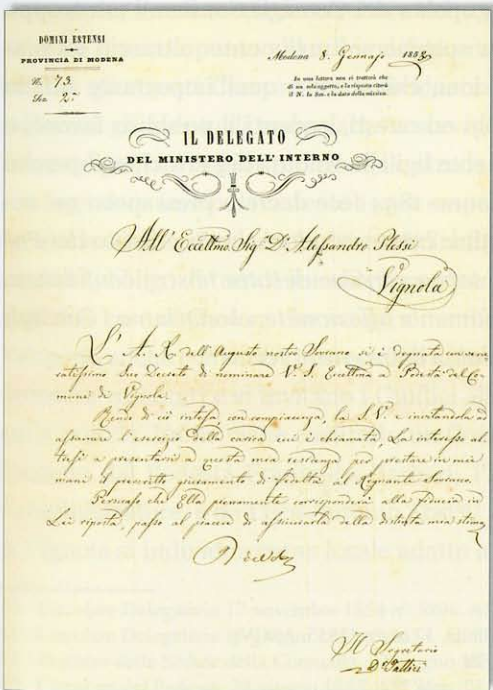 DOMINJ ESTENSI
PROVINCIA DI MODENA
N. 73.
Sez. 2.ª
Modena 8. Gennajo
In una lettera non si tratterà che
di un solo oggetto, e la risposta citerà
il N. la Sez. e la data della missiva.
IL DELEGATO
DEL MINISTERO DELL' INTERNO
All' Eccellmo Sig.r D.r Alessandro Plessi
Vignola
L' A. R. dell' Augusto nostro Sovrano si è degnata con
catissimo Suo Decreto di nominare V. S. Eccellma a Podestà del Co-
mune di Vignola.
Rendo di ciò intesa con compiacenza, la S. V. e invitandola ad
assumere l' esercizio della carica cui è chiamata La interesso al-
tresì a presentarsi a questa mia residenza per prestare in mie
mani il prescritto giuramento di fedeltà al Regnante Sovrano.
Persuaso che Ella pienamente corrisponderà alla fiducia in
Lei riposta, passo al piacere di assicurarla della distinta mia stima
Il Segretario